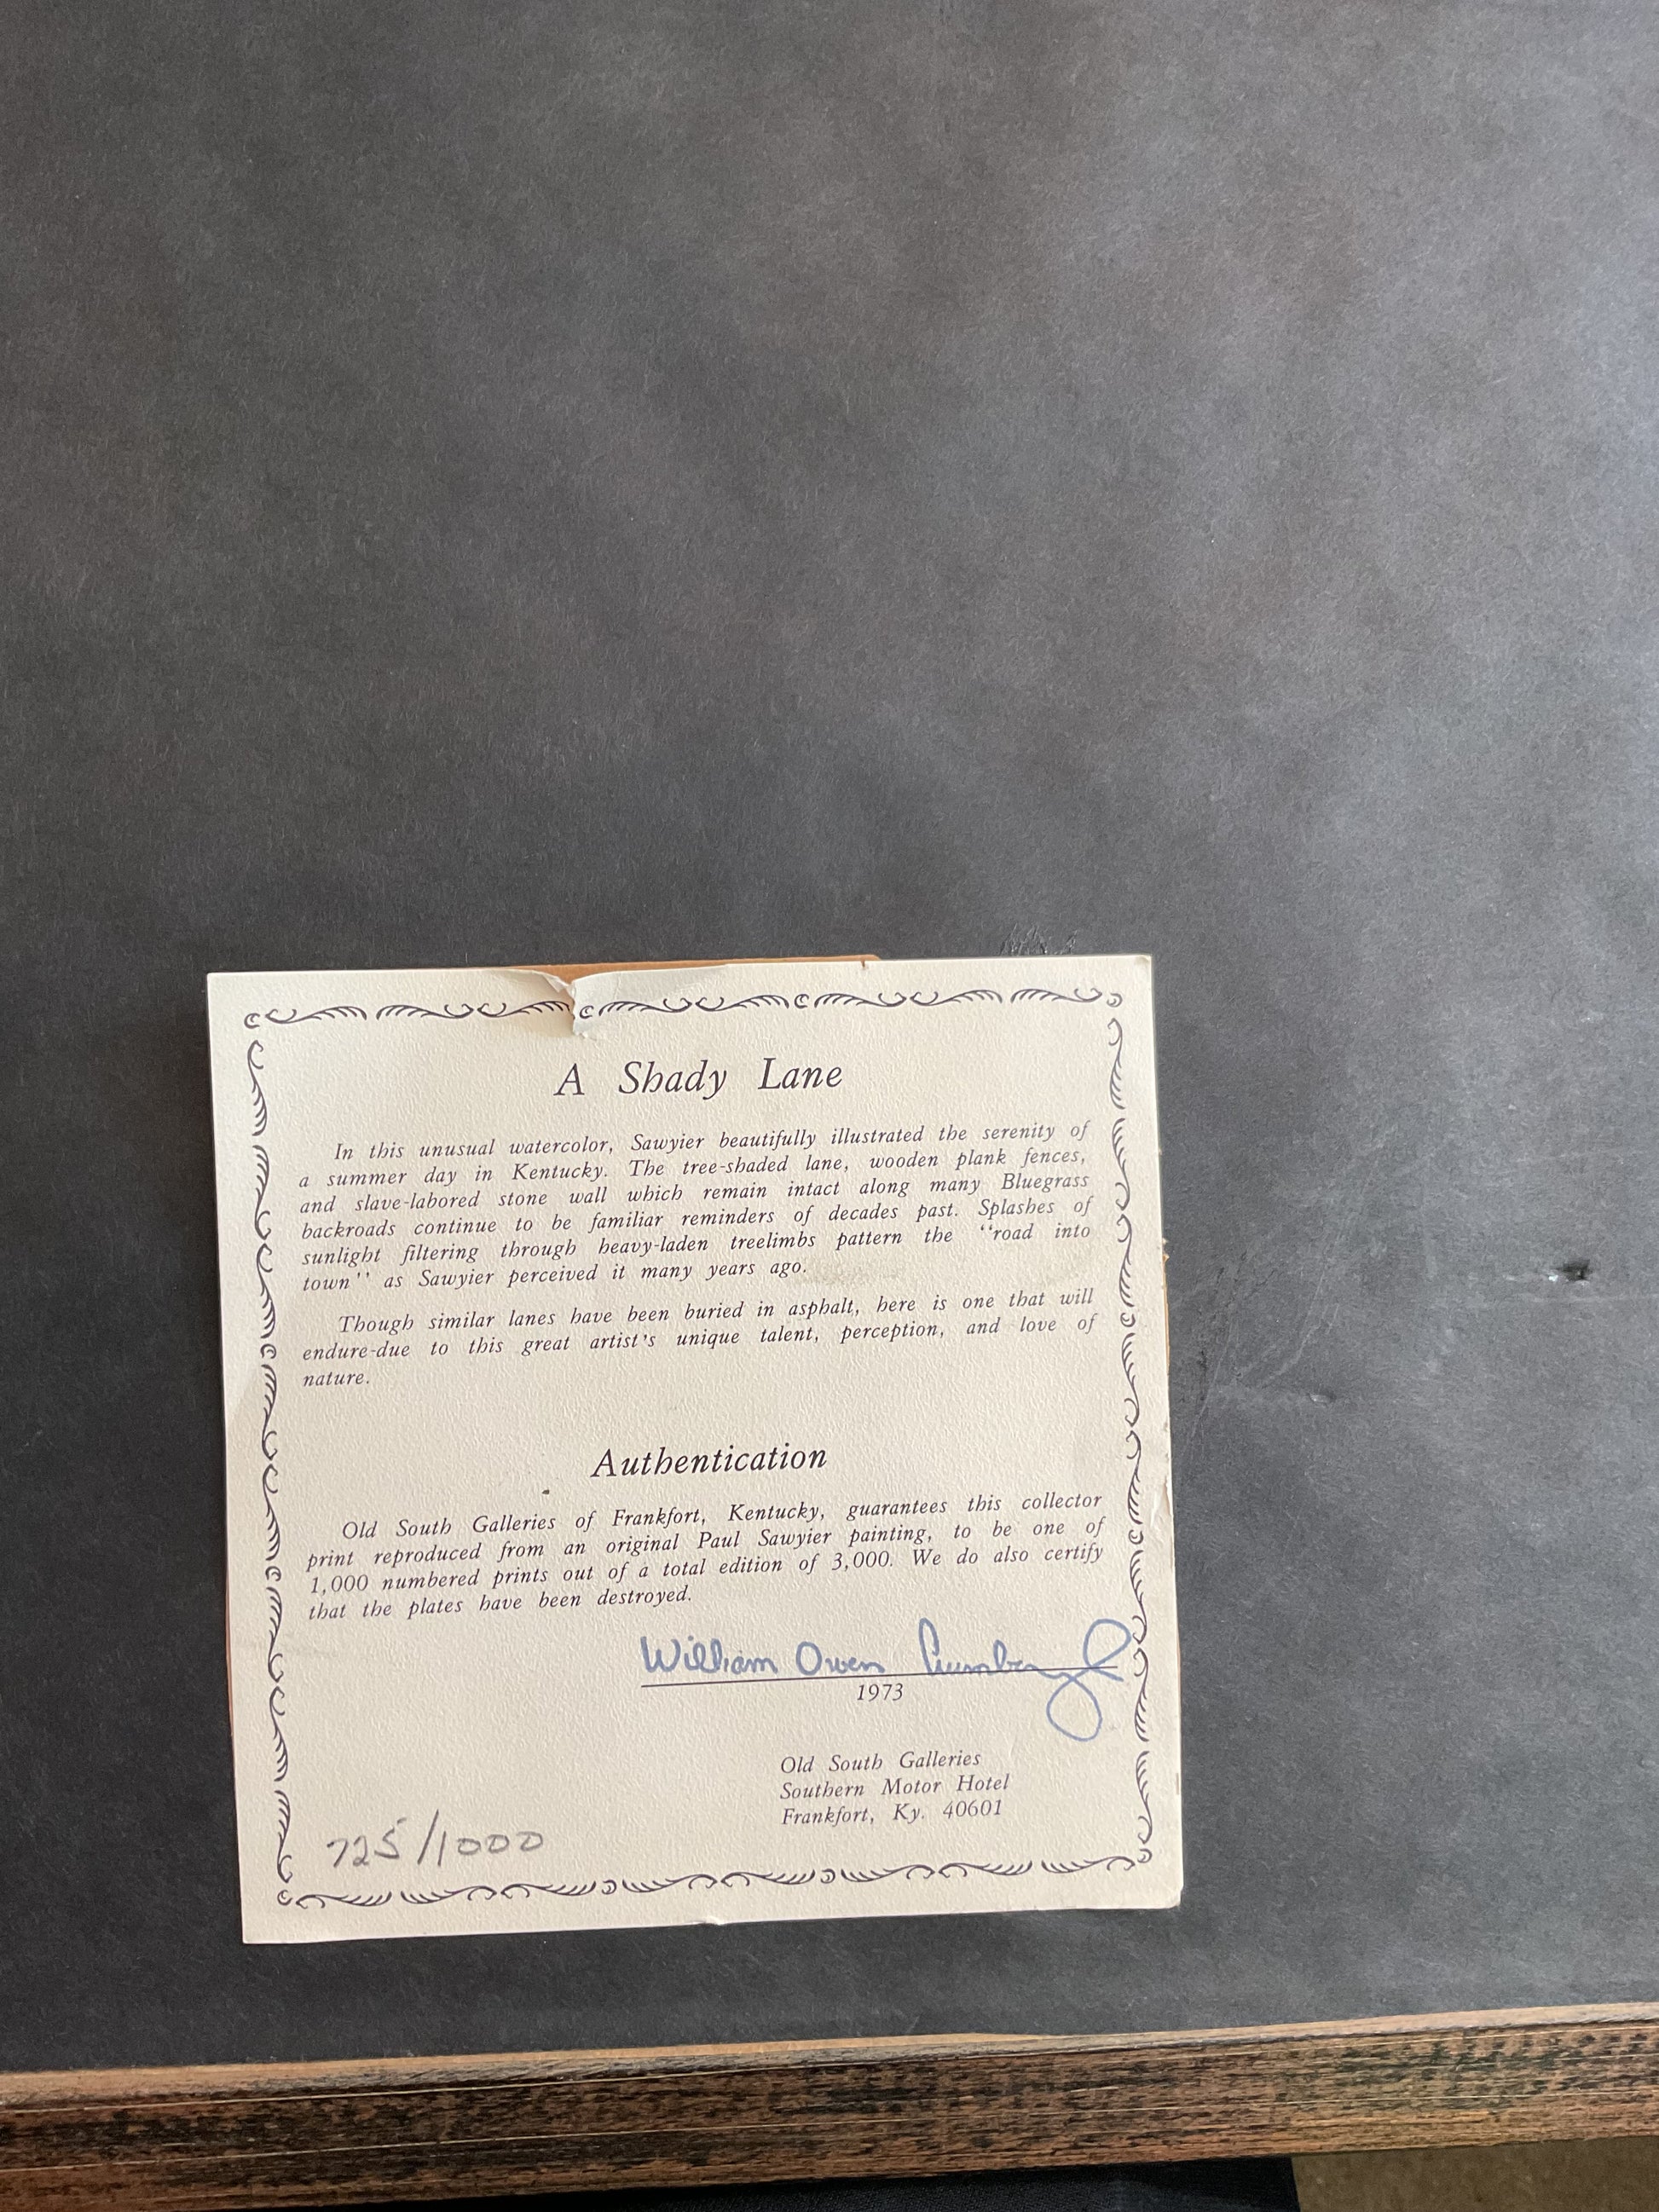 A Shady Lane
In this unusual watercolor, Sawyier beautifully illustrated the serenity of
a summer day in Kentucky. The tree-shaded lane, wooden plank fences,
and slave-labored stone wall which remain intact along many Bluegrass
backroads continue to be familiar reminders of decades past. Splashes of
sunlight filtering through heavy-laden treelimbs pattern the ‘‘road into
town’’ as Sawyier perceived it many years ago.
Though similar lanes have been buried in asphalt, here is one that will
endure-due to this great artist's unique talent, perception, and love of
nature.
Authentication
Old South Galleries of Frankfort, Kentucky, guarantees this collector
print reproduced from an original Paul Sawyier painting, to be one of
1,000 numbered prints out of a total edition of 3,000. We do also certify
that the plates have been destroyed.
William Owen
1973
Old South Galleries
Southern Motor Hotel
Frankfort, Ky. 40601
725/1000